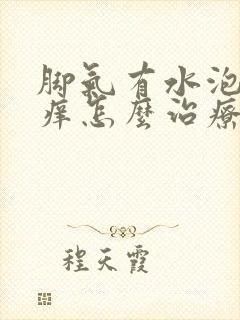 脚氣有水泡
痒怎麽治療
程天霞